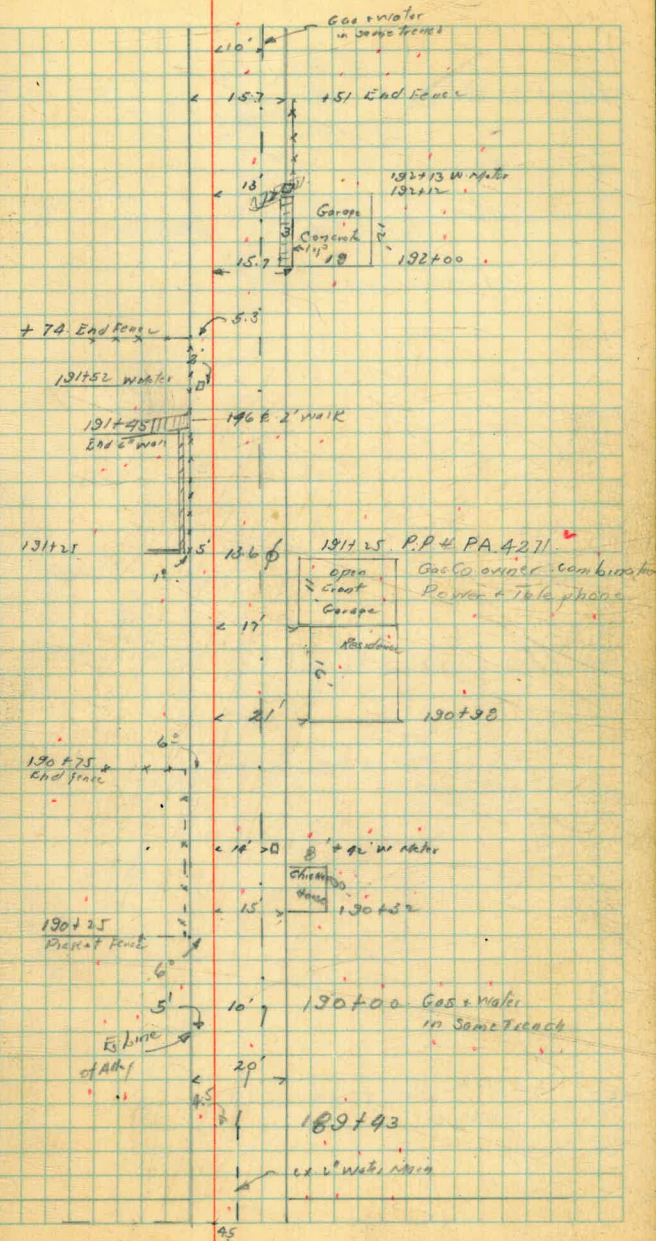 Gas + Water
in same trench
10'
15.7 +51 End Fence
13' 192+13 W. Meter
192+12
Garage
Concrete
21'
15.7 18 192+00
5.3'
+74 End Fence
191+52 W Meter
191+45 146 € 2' Walk
End 6" Wall
191+25 5' 13.6 191+25 P.P # PA 4271
Gas Co owner combination
Power + Telephone
1°
open
Front
Garage
17'
Residence
21' 190+98
6°
190+75
End fence
14' 8' +42' W Meter
Chicken
House
15' 190+32
190+25
Present Fence
6°
5' 10' 190+00 Gas & Water
in Same Trench
Ex Line
of Alley
20'
4.5
189+93
ex 2" Water Main
45